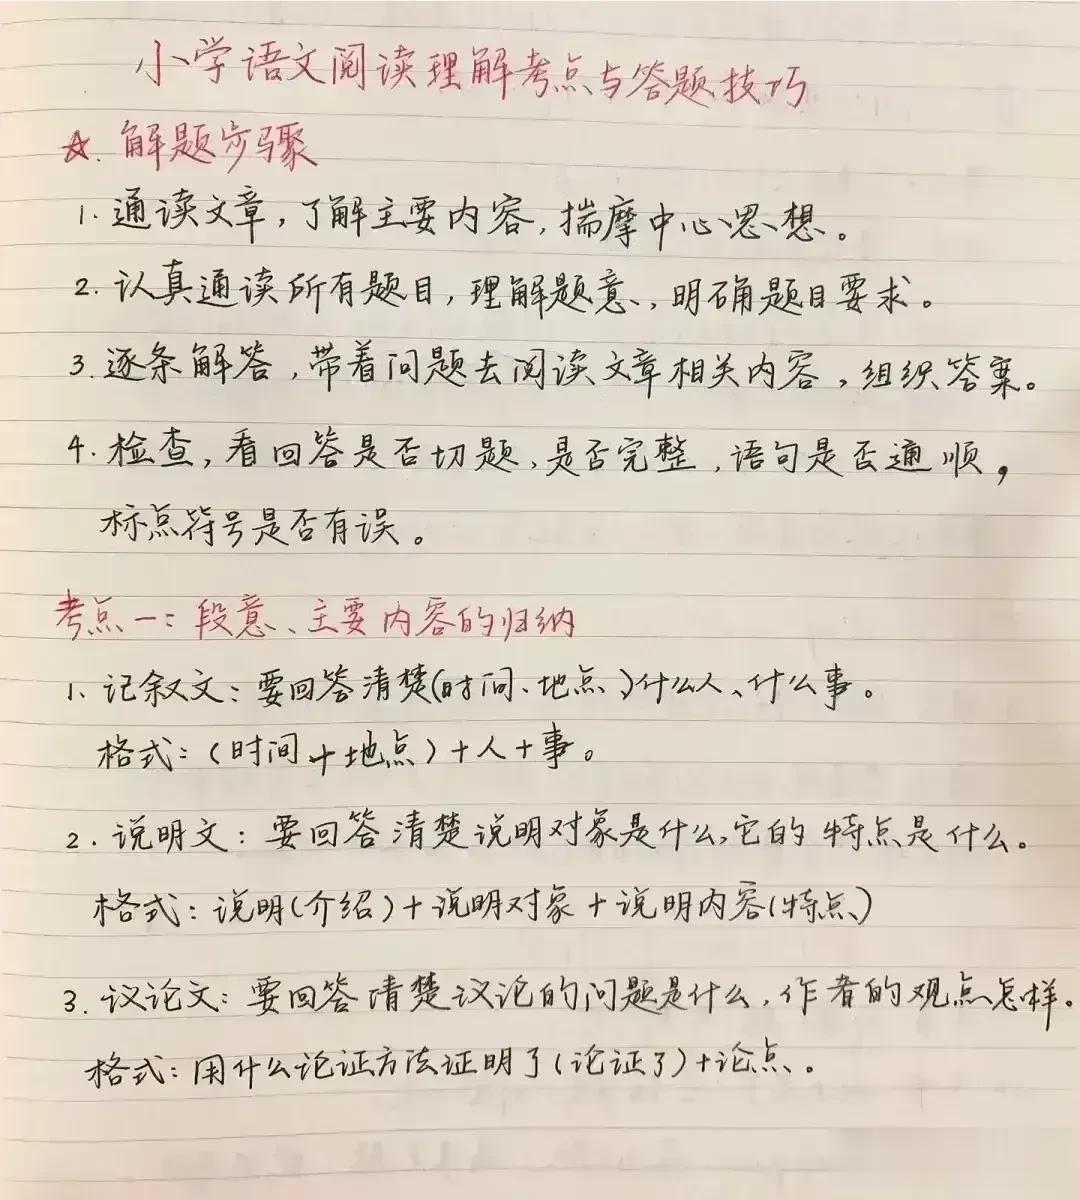 小学语文阅读理解考点与答题技巧
☆. 解题步骤
1. 通读文章,了解主要内容,揣摩中心思想。
2. 认真通读所有题目,理解题意,明确题目要求。
3. 逐条解答,带着问题去阅读文章相关内容,组织答案。
4. 检查,看回答是否切题,是否完整,语句是否通顺,
标点符号是否有误。
考点一:段意、主要内容的归纳
1. 记叙文:要回答清楚(时间、地点)什么人、什么事。
格式:(时间+地点)+人+事。
2. 说明文:要回答清楚说明对象是什么,它的特点是什么。
格式:说明(介绍)+说明对象+说明内容(特点)
3. 议论文:要回答清楚议论的问题是什么,作者的观点怎样。
格式:用什么论证方法证明了(论证了)+论点。